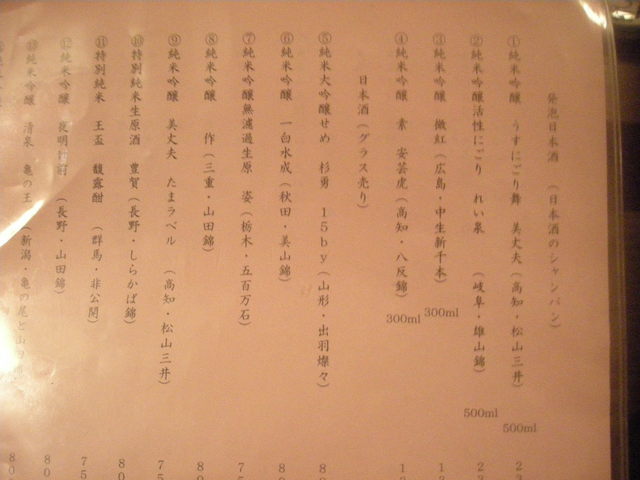 発泡日本酒 (日本酒のシャンパン)
① 純米吟醸 うすにごり舞 美丈夫 (高知・松山三井) 500ml
② 純米吟醸活性にごり れいせん (岐阜・雄山錦) 500ml
③ 純米吟醸 微紅 (広島・中生新千本) 300ml
④ 純米吟醸 素 安芸虎 (高知・八反錦) 300ml
日本酒 (グラス売り)
⑤ 純米大吟醸せめ 杉勇 15by (山形・出羽燦々)
⑥ 純米吟醸 一白水成 (秋田・美山錦)
⑦ 純米吟醸無濾過生原 姿 (栃木・五百万石)
⑧ 純米吟醸 作 (三重・山田錦)
⑨ 純米吟醸 美丈夫 たまラベル (高知・松山三井)
⑩ 特別純米生原酒 豊賀 (長野・しらかば錦)
⑪ 特別純米 王盃 馥露酣 (群馬・非公開)
⑫ 純米吟醸 夜明け前 (長野・山田錦)
⑬ 純米吟醸 清泉 亀の王 (新潟・亀の尾と山田錦)